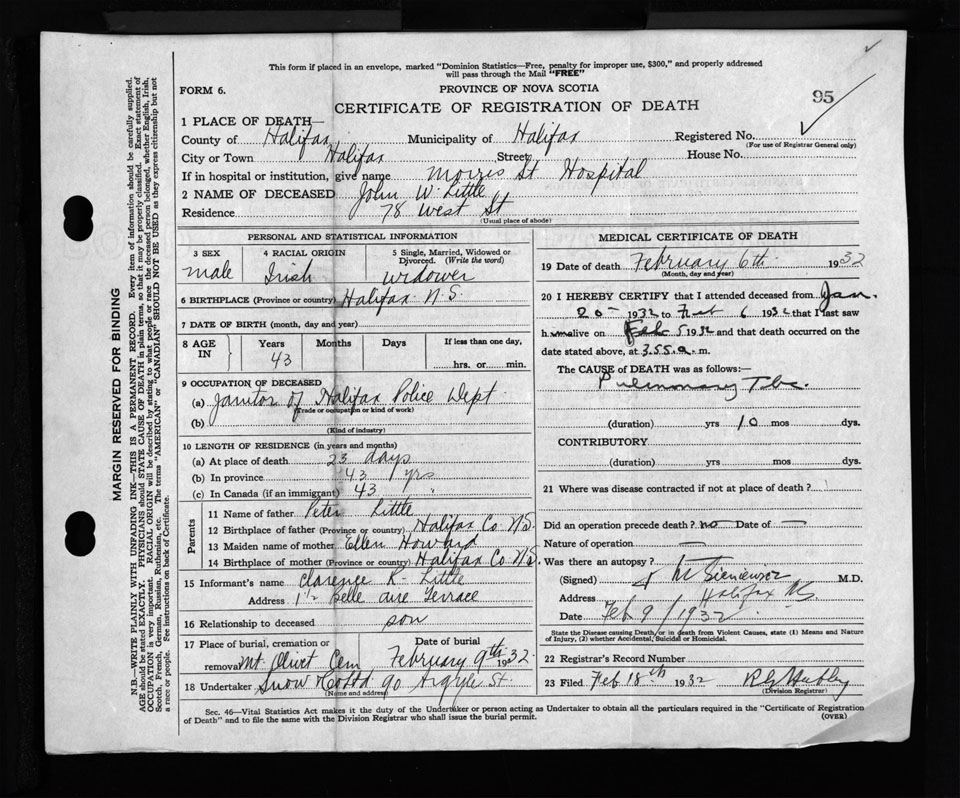 This form if placed in an envelope, marked "Dominion Statistics—Free, penalty for improper use, $300," and properly addressed
will pass through the Mail "FREE"
FORM 6.
PROVINCE OF NOVA SCOTIA
95
CERTIFICATE OF REGISTRATION OF DEATH
1 PLACE OF DEATH—
County of Halifax Municipality of Halifax Registered No.
(For use of Registrar General only)
City or Town Halifax Street House No.
If in hospital or institution, give name Morris St Hospital
2 NAME OF DECEASED John W. Little
Residence 78 West St
(Usual place of abode)
PERSONAL AND STATISTICAL INFORMATION
3 SEX 4 RACIAL ORIGIN 5 Single, Married, Widowed or Divorced. (Write the word)
male Irish widower
6 BIRTHPLACE (Province or country) Halifax N.S.
7 DATE OF BIRTH (month, day and year)
8 AGE IN Years Months Days If less than one day,
43 hrs. or min.
9 OCCUPATION OF DECEASED
(a) Janitor of Halifax Police Dept.
(Trade or occupation or kind of work)
(b)
(Kind of industry)
10 LENGTH OF RESIDENCE (in years and months)
(a) At place of death 23 days
(b) In province 43 yrs
(c) In Canada (if an immigrant) 43 "
Parents
11 Name of father Peter Little
12 Birthplace of father (Province or country) Halifax Co N.S.
13 Maiden name of mother Ellen Howard
14 Birthplace of mother (Province or country) Halifax Co N.S.
15 Informant's name Clarence R. Little
Address 1 1/2 Belle aire Terrace
16 Relationship to deceased son
17 Place of burial, cremation or Date of burial
removal Mt. Olivet Cem February 9th 1932.
18 Undertaker Snow & Co Ltd 90 Argyle St.
(Name and address)
MEDICAL CERTIFICATE OF DEATH
19 Date of death February 6th 1932
(Month, day and year)
20 I HEREBY CERTIFY that I attended deceased from Jan.
20 - 1932 to Feb 6 1932 that I last saw
h im alive on Feb 5 1932 and that death occurred on the
date stated above, at 3.55 a. m.
The CAUSE of DEATH was as follows:—
Pulmonary Tbc.
(duration) yrs 10 mos dys.
CONTRIBUTORY
(duration) yrs mos dys.
21 Where was disease contracted if not at place of death?
Did an operation precede death? no Date of —
Nature of operation —
Was there an autopsy?
(Signed) M.D.
Address Halifax N.S.
Date Feb 9/1932
State the Disease causing Death, or in death from Violent Causes, state (1) Means and Nature
of Injury, (2) whether Accidental, Suicidal or Homicidal.
22 Registrar's Record Number
23 Filed Feb 18th 1932
(Division Registrar)
Sec. 46—Vital Statistics Act makes it the duty of the Undertaker or person acting as Undertaker to obtain all the particulars required in the "Certificate of Registration
of Death" and to file the same with the Division Registrar who shall issue the burial permit.
(OVER)
MARGIN RESERVED FOR BINDING
N.B.—WRITE PLAINLY WITH UNFADING INK—THIS IS A PERMANENT RECORD. Every item of information should be carefully supplied.
AGE should be stated EXACTLY. PHYSICIANS should STATE CAUSE OF DEATH in plain terms, so that it may be properly classified. Exact statement of
OCCUPATION is very important. RACIAL ORIGIN will be described by stating to what people or race the deceased person belonged, whether English, Irish,
Scotch, French, German, Russian, Ruthenian, etc. The terms "AMERICAN" or "CANADIAN" SHOULD NOT BE USED as they express citizenship but not
a race or people. See instructions on back of Certificate.